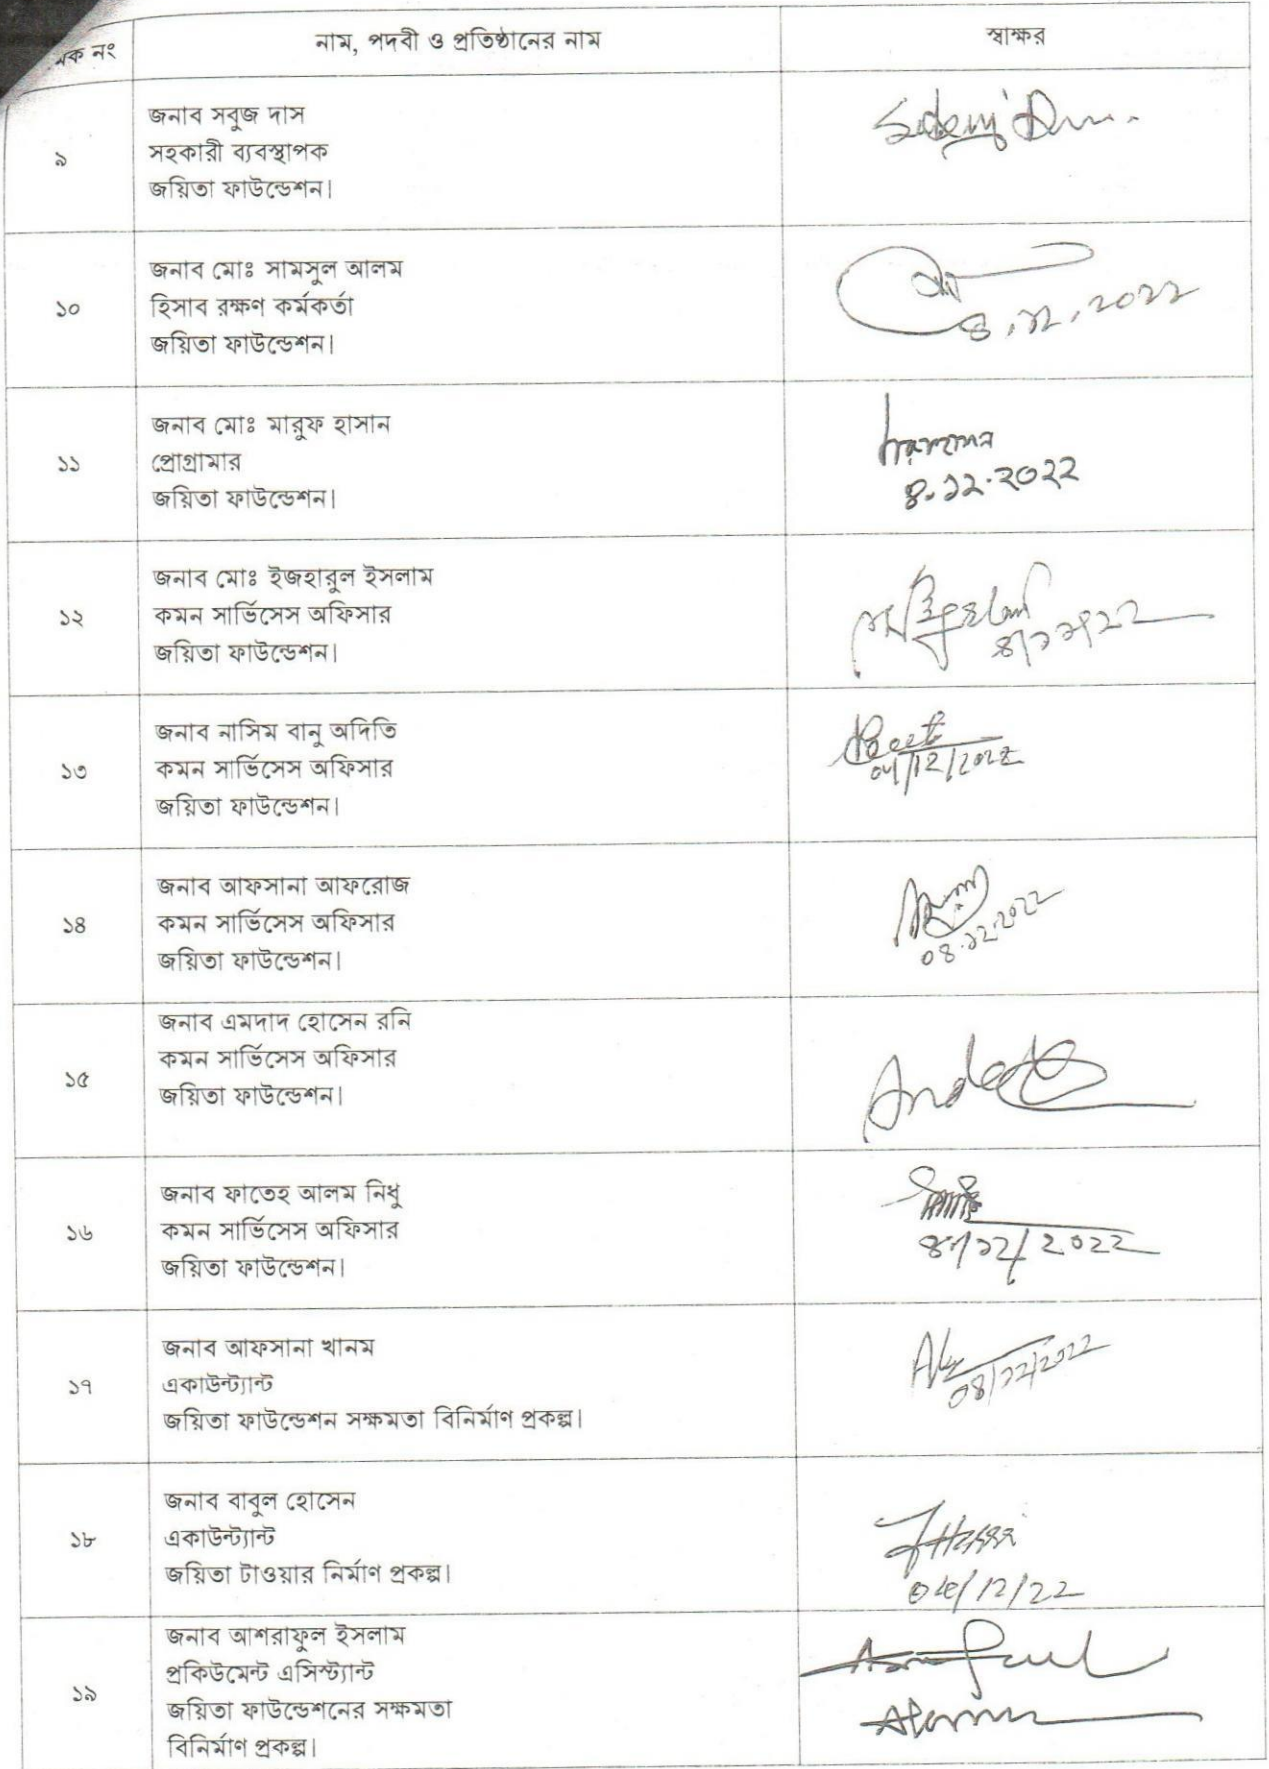 মক নং নাম, পদবী ও প্রতিষ্ঠানের নাম স্বাক্ষর
জনাব সবুজ দাস
৯ সহকারী ব্যবস্থাপক
জয়িতা ফাউন্ডেশন।
জনাব মোঃ সামসুল আলম
১০ হিসাব রক্ষণ কর্মকর্তা
জয়িতা ফাউন্ডেশন।
৪.১২.২০২২
জনাব মোঃ মারুফ হাসান
১১ প্রোগ্রামার
জয়িতা ফাউন্ডেশন।
৪.১২.২০২২
জনাব মোঃ ইজহারুল ইসলাম
১২ কমন সার্ভিসেস অফিসার
জয়িতা ফাউন্ডেশন।
জনাব নাসিম বানু অদিতি
১৩ কমন সার্ভিসেস অফিসার
জয়িতা ফাউন্ডেশন।
04/12/2022
জনাব আফসানা আফরোজ
১৪ কমন সার্ভিসেস অফিসার
জয়িতা ফাউন্ডেশন।
০৪.১২.২০২২
জনাব এমদাদ হোসেন রনি
১৫ কমন সার্ভিসেস অফিসার
জয়িতা ফাউন্ডেশন।
জনাব ফাতেহ আলম নিধু
১৬ কমন সার্ভিসেস অফিসার
জয়িতা ফাউন্ডেশন।
৪/১২/২০২২
জনাব আফসানা খানম
১৭ একাউন্ট্যান্ট
জয়িতা ফাউন্ডেশন সক্ষমতা বিনির্মাণ প্রকল্প।
০৪/১২/২০২২
জনাব বাবুল হোসেন
১৮ একাউন্ট্যান্ট
জয়িতা টাওয়ার নির্মাণ প্রকল্প।
04/12/22
জনাব আশরাফুল ইসলাম
প্রকিউমেন্ট এসিস্ট্যান্ট
১৯ জয়িতা ফাউন্ডেশনের সক্ষমতা
বিনির্মাণ প্রকল্প।